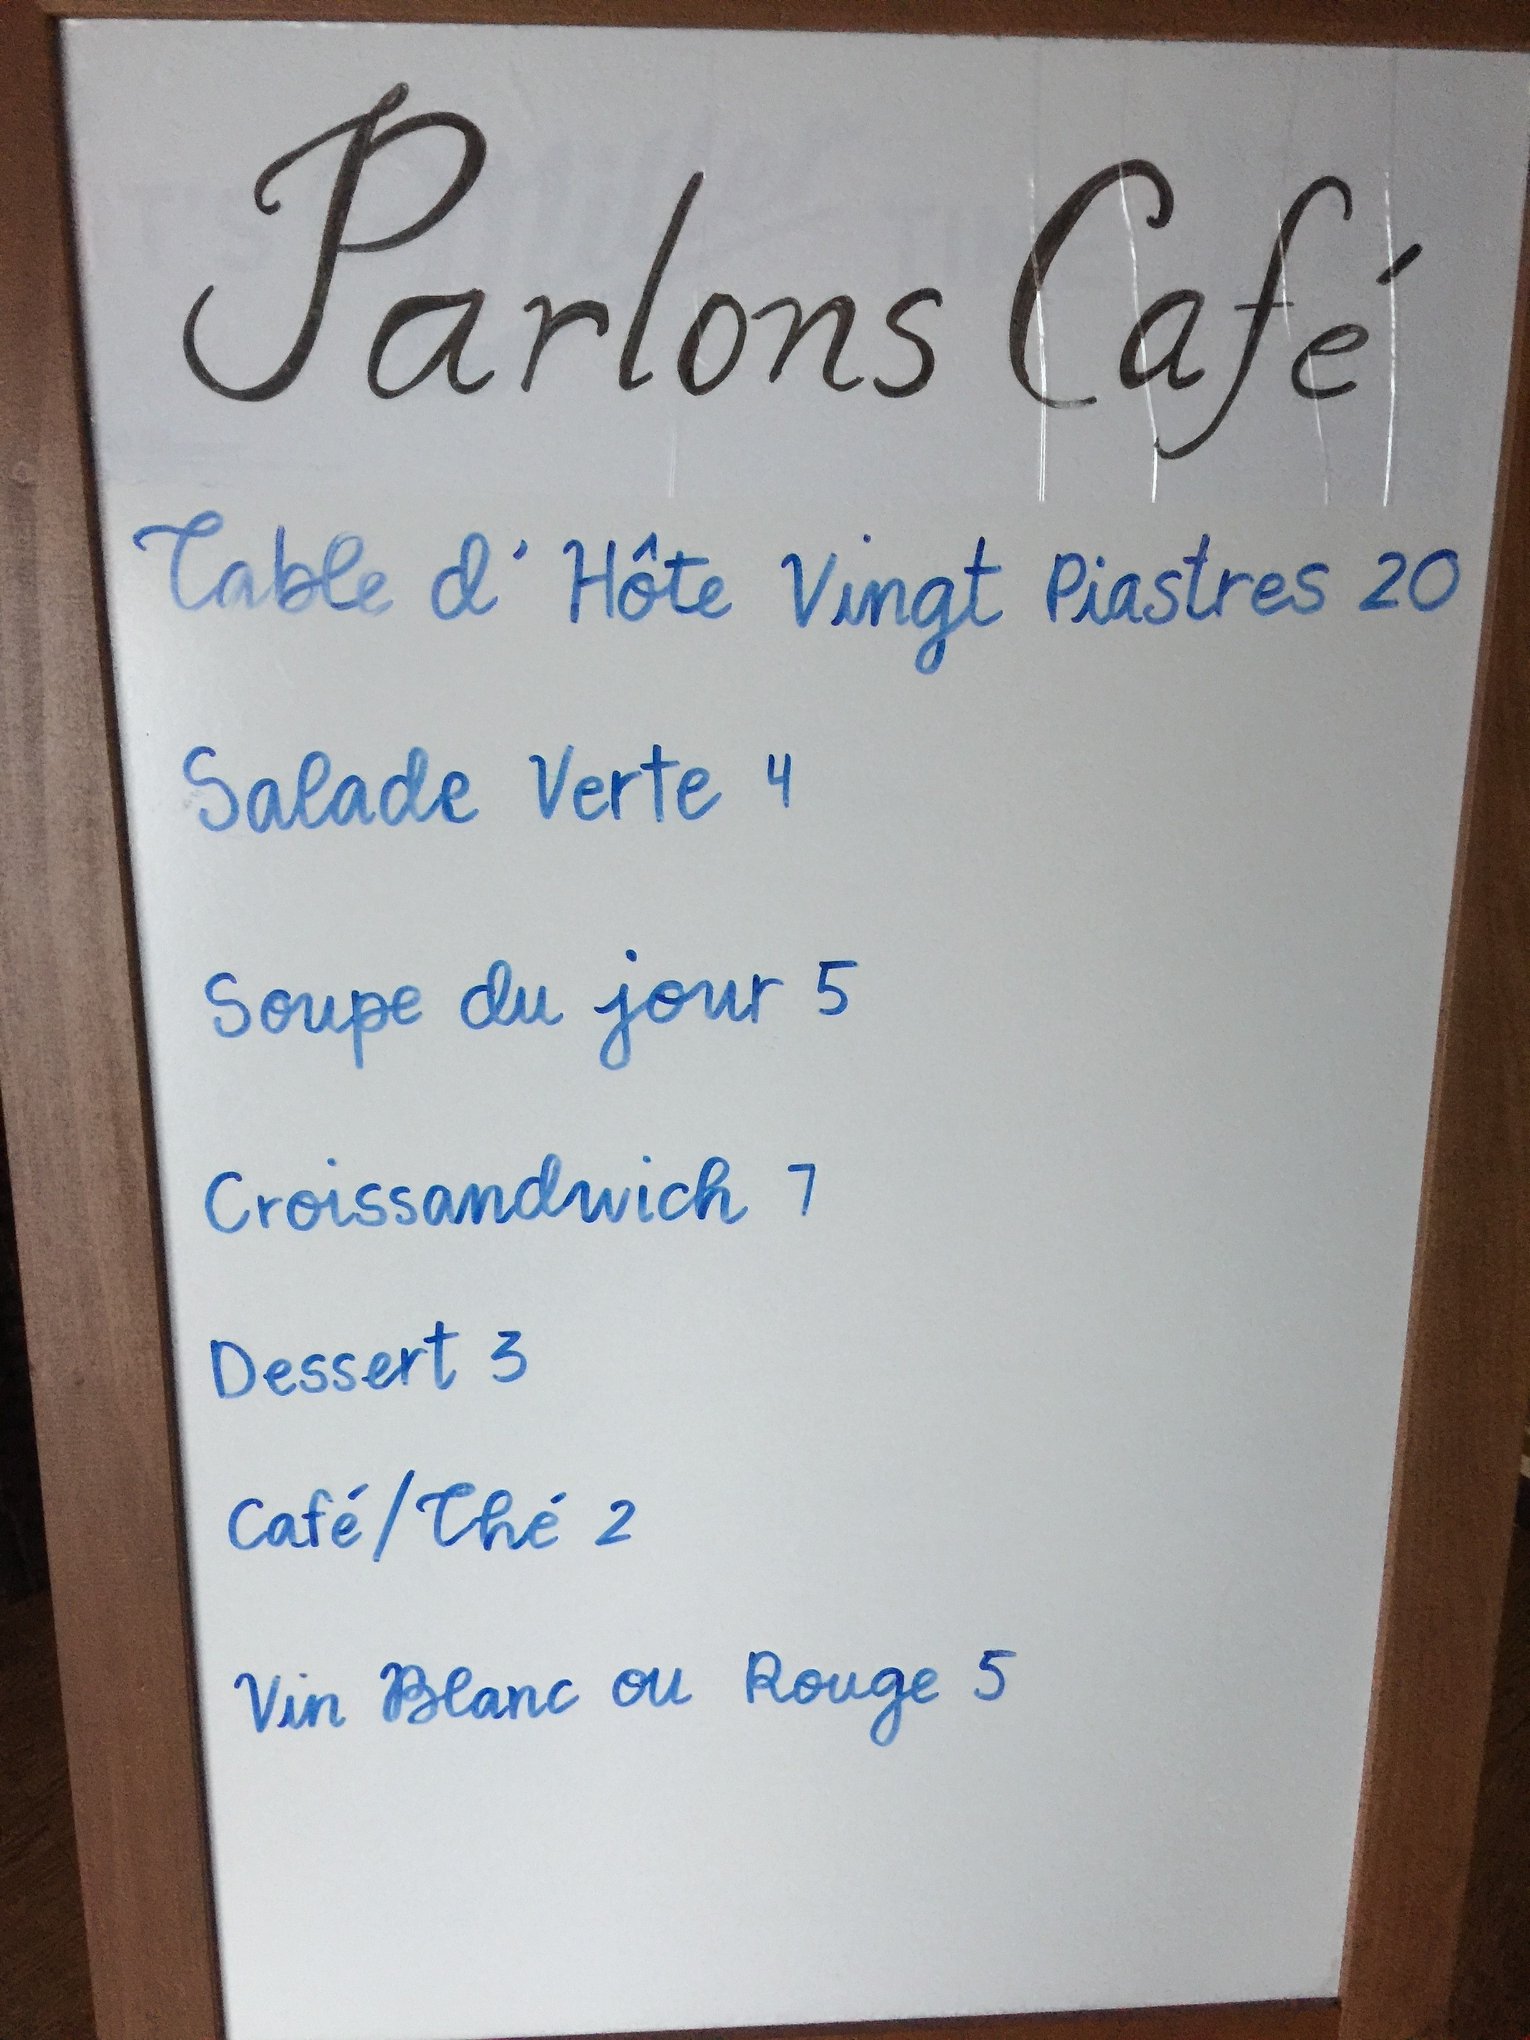 Parlons Café
Table d'Hôte Vingt Piastres 20
Salade Verte 4
Soupe du jour 5
Croissandwich 7
Dessert 3
Café/Thé 2
Vin Blanc ou Rouge 5